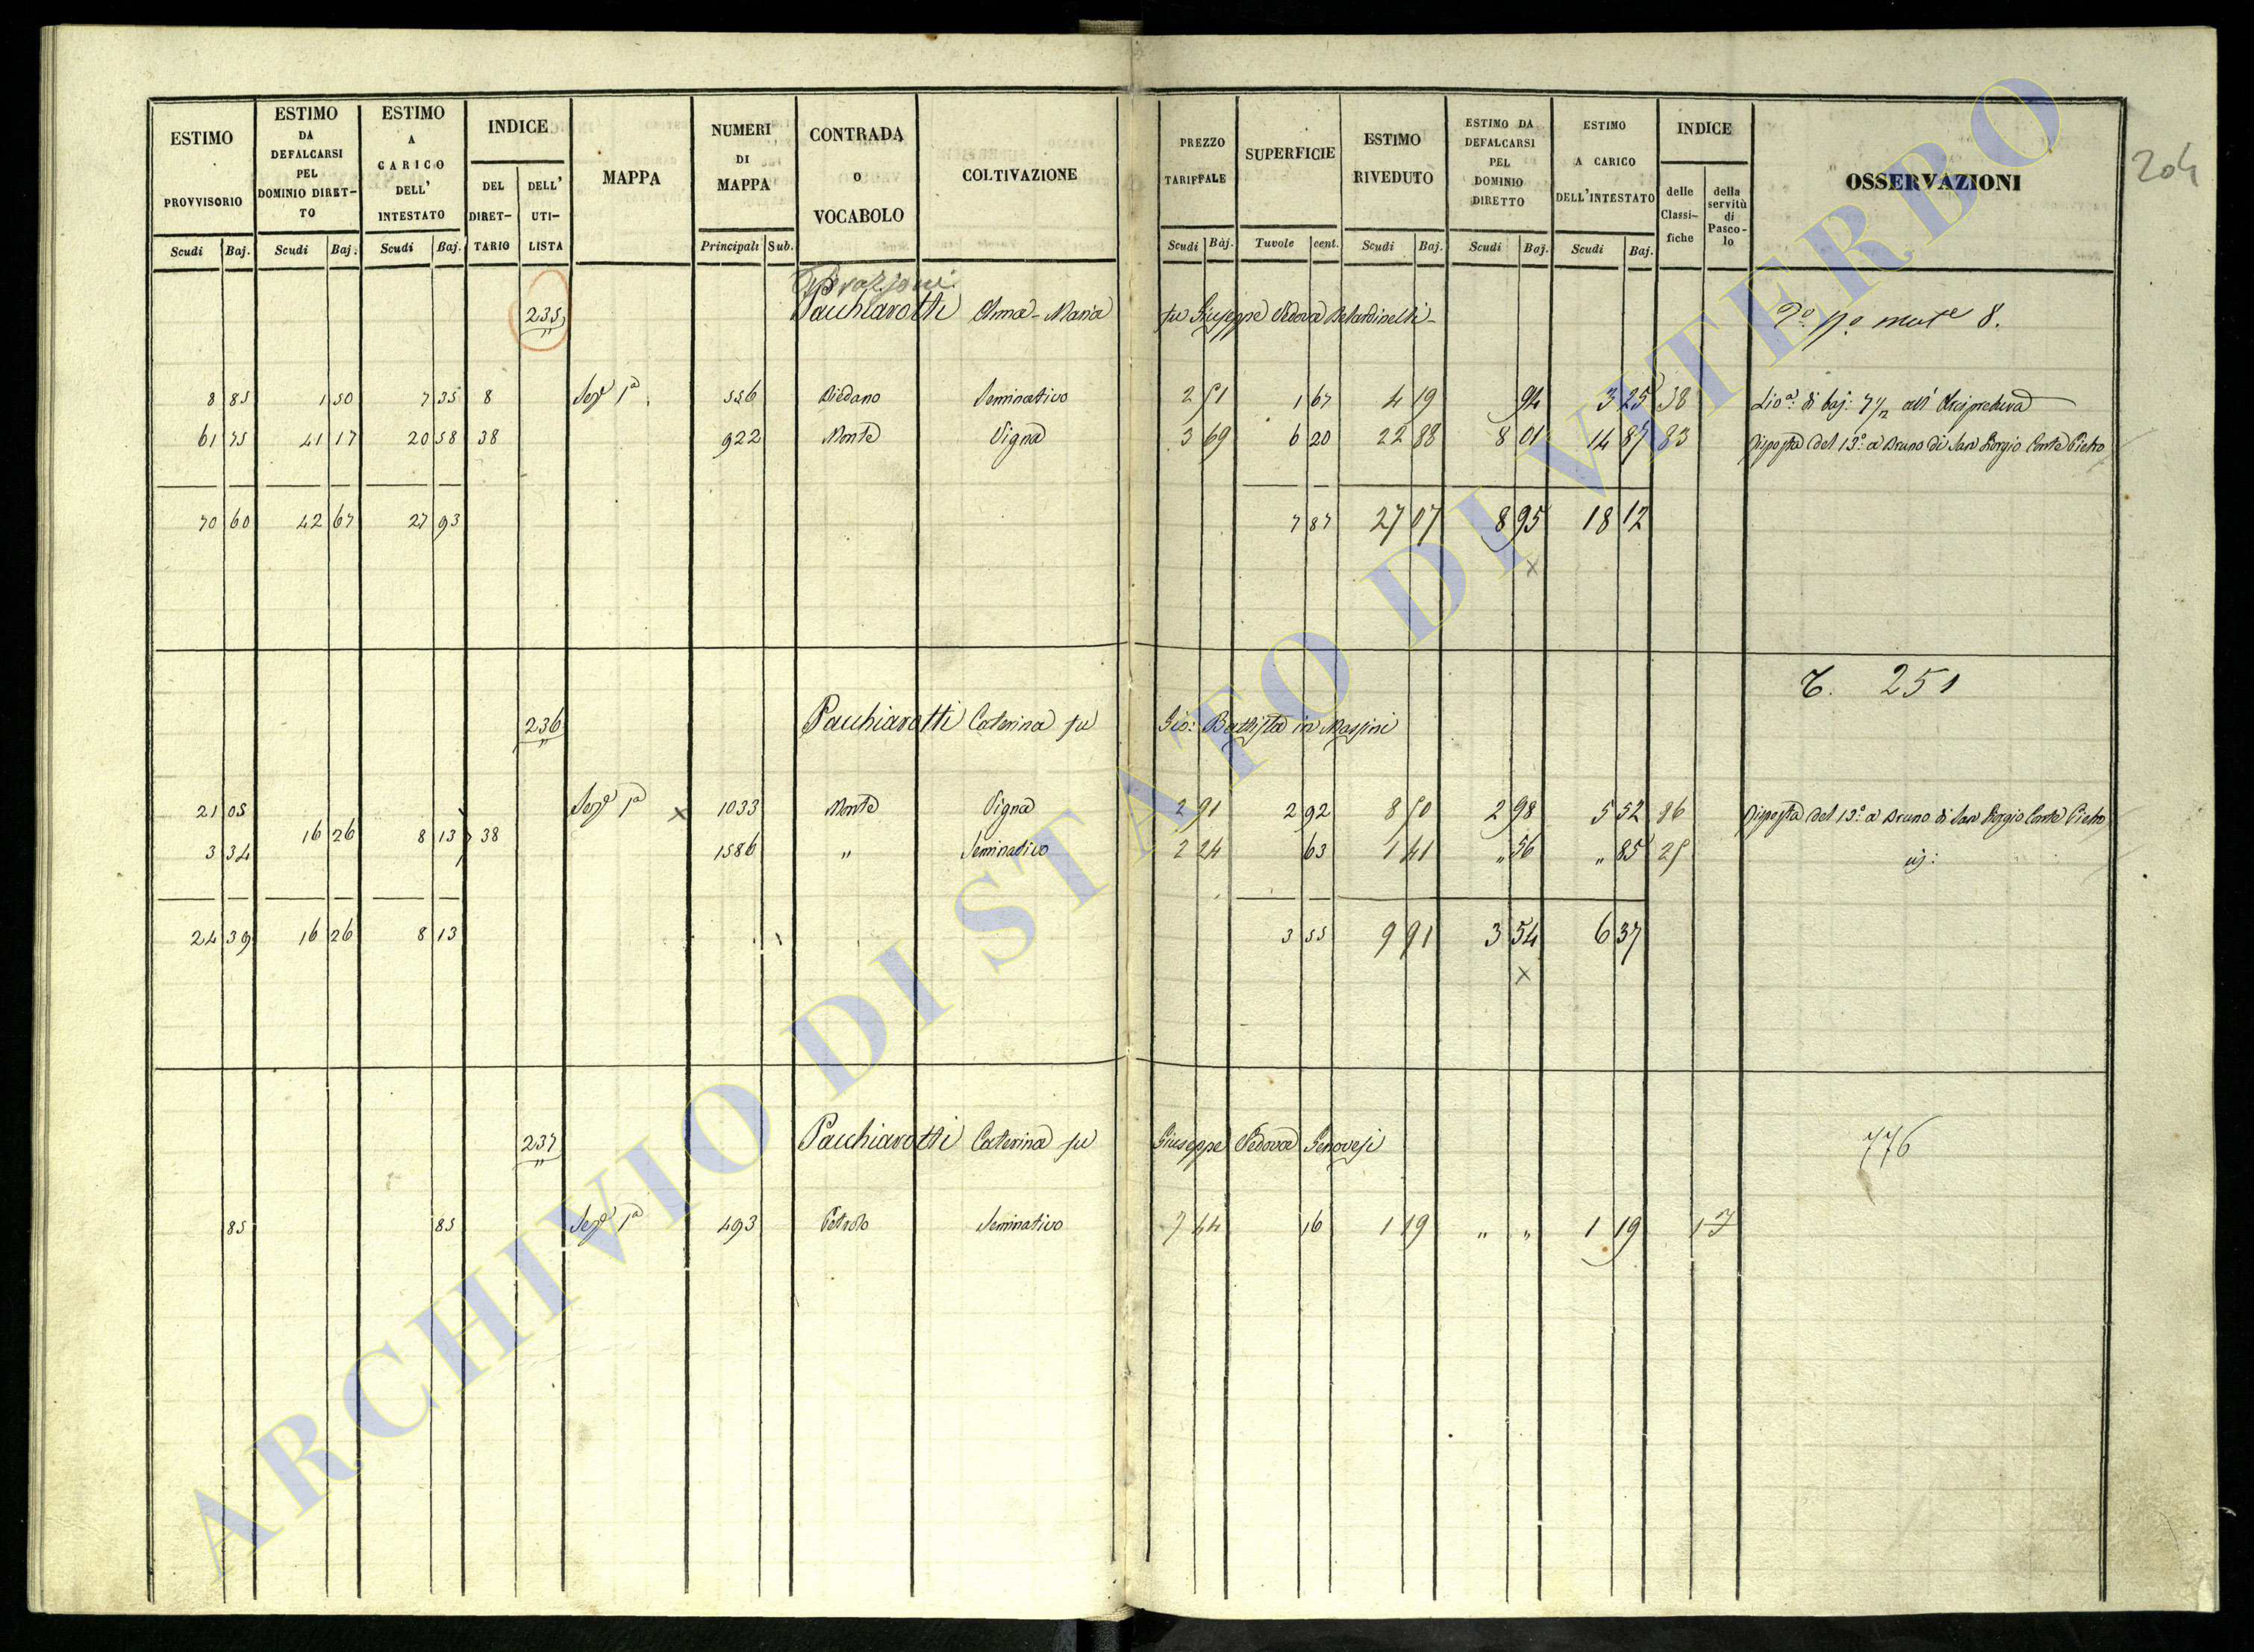 204
ESTIMO PROVVISORIO Scudi Baj.
ESTIMO DA DEFALCARSI PEL DOMINIO DIRET-TO Scudi Baj.
ESTIMO A CARICO DELL' INTESTATO Scudi Baj.
INDICE DEL DIRET-TARIO DELL' UTI-LISTA
MAPPA
NUMERI DI MAPPA Principali Sub.
CONTRADA O VOCABOLO
COLTIVAZIONE
PREZZO TARIFFALE Scudi Baj.
SUPERFICIE Tavole cent.
ESTIMO RIVEDUTO Scudi Baj.
ESTIMO DA DEFALCARSI PEL DOMINIO DIRETTO Scudi Baj.
ESTIMO A CARICO DELL'INTESTATO Scudi Baj.
INDICE delle Classi-fiche della servitù di Pasco-lo
OSSERVAZIONI
235 Pacchiarotti Anna-Maria fu Giuseppe Vedova Belardinelli 8.
8 85 1 50 7 35 8 Seze 1a 556 Biedano Seminativo 2 51 1 67 4 19 94 3 25 38 di baj: 7 1/2 all' Arcipretura
61 75 41 17 20 58 38 922 Monte Vigna 3 69 6 20 22 88 8 01 14 87 83 Risposta del 13.o a Bruno di San Giorgio Conte Pietro
70 60 42 67 27 93 7 87 27 07 8 95 18 12
x
T. 251
236 Pacchiarotti Caterina fu Gio: Battista in Massini
21 05 Sezе 1a x 1033 Monte Vigna 2 91 2 92 8 50 2 98 5 52 86 Risposta del 13.o a Bruno di San Giorgio Conte Pietro
16 26 8 13 38
3 34 1586 " Seminativo 2 24 63 1 41 " 56 " 85 25
24 39 16 26 8 13 3 55 9 91 3 54 6 37
x
237 Pacchiarotti Caterina fu Giuseppe Vedova Genovesi 776
85 85 Sezе 1a 493 Petrolo Seminativo 7 44 16 1 19 " " 1 19 17
ARCHIVIO DI STATO DI VITERBO